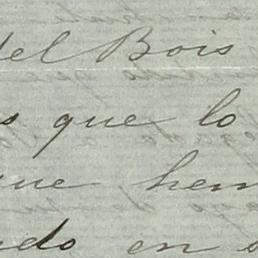 del Bois
s que lo
que, hem
ndo en s